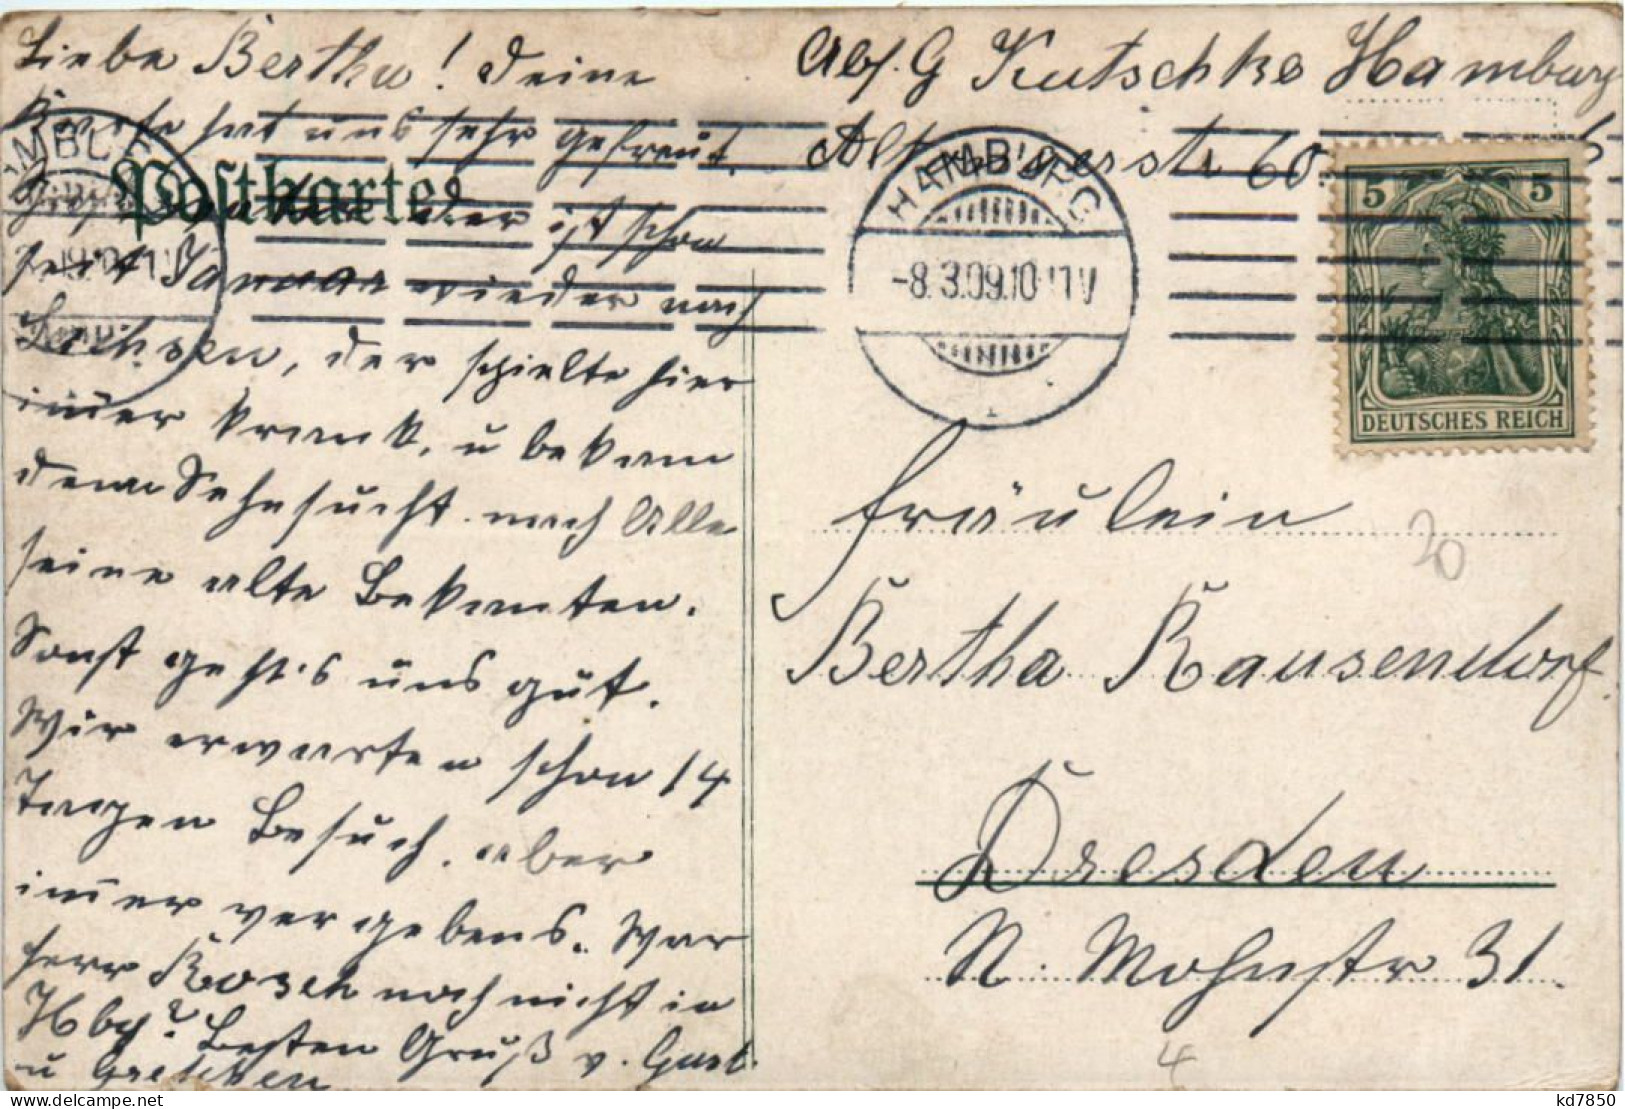 Liebe Bertha! Deine
Karte hat uns sehr gefreut.
der ist schon
seit Januar wieder nach
Sachsen, der spielte hier
im̅er krank, u bekam
dann Sehnsucht nach Alle
seine alte Bekannten.
Sonst geht's uns gut.
Wir erwarten schon 14
Tagen Besuch, aber
im̅er vergebens. War
Herr Kosch noch nicht in
Hbg? Besten Gruß v. Gust.
u Gretchen
Postkarte
Abs. G Kutschke Hamburg
str 60.
HAMBURG
-8.3.09.10-11V
1
5 5
DEUTSCHES REICH
Fräulein
Bertha Rausendorf
Dresden
N. Mohnstr 31.
20
4
kd7850